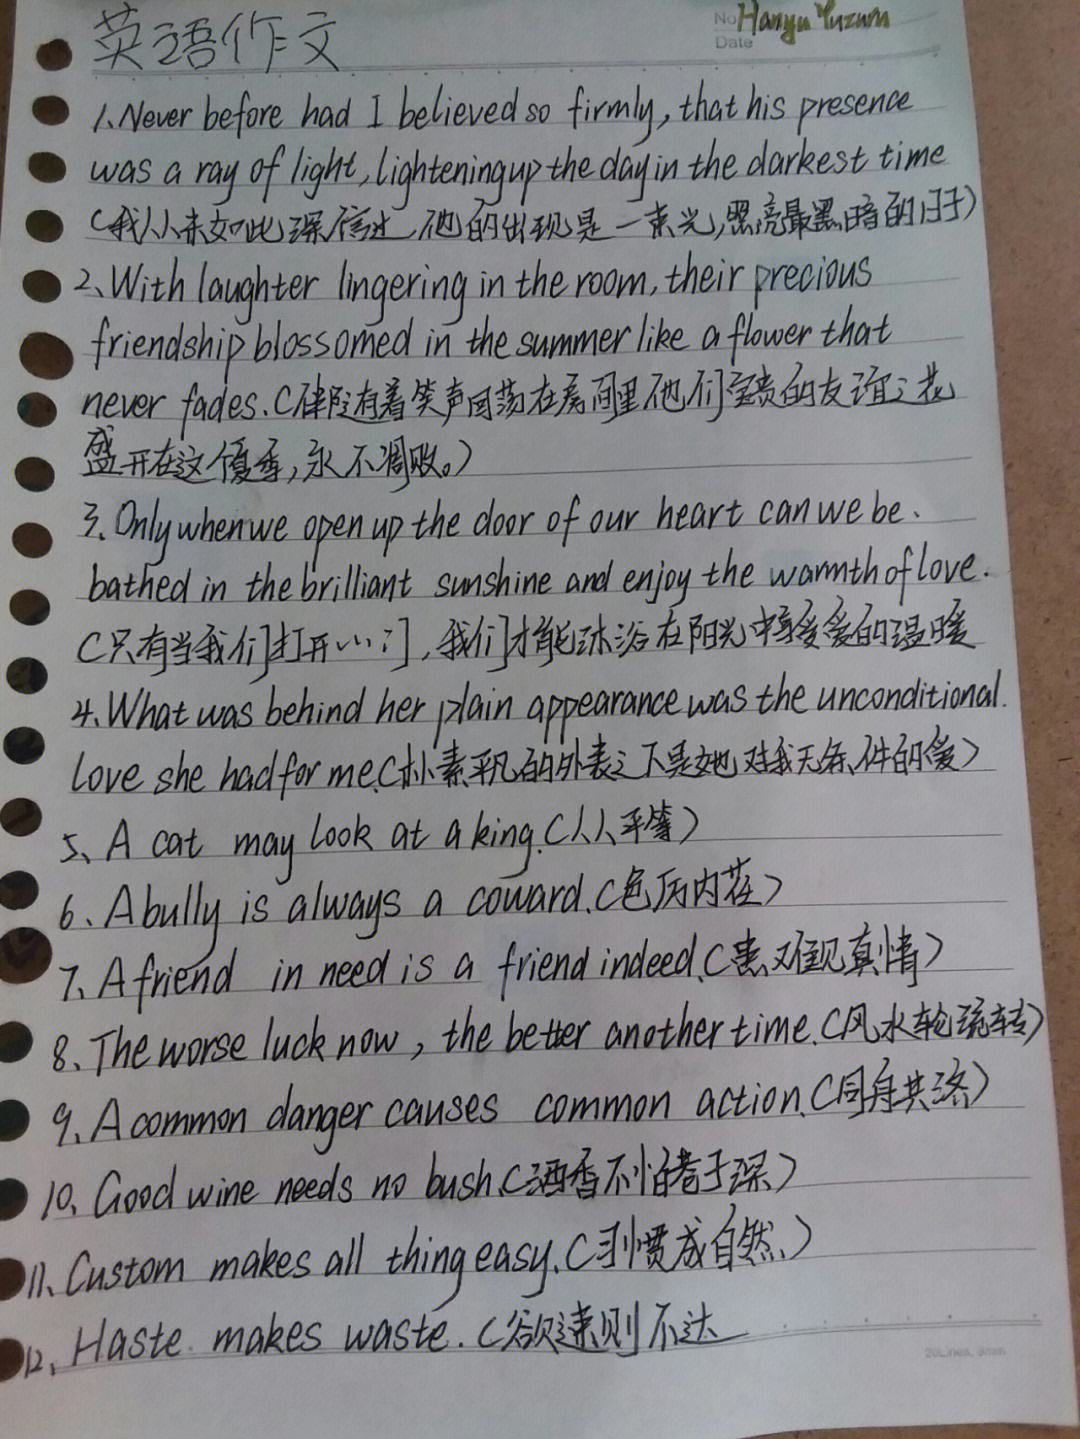 英语作文
No Hanyu Yuzuru
Date
1、Never before had I believed so firmly, that his presence
was a ray of light, lightening up the day in the darkest time
(我从未如此深信过,他的出现是一束光,照亮最黑暗的日子)
2、With laughter lingering in the room, their precious
friendship blossomed in the summer like a flower that
never fades.(伴随着笑声回荡在房间里他们宝贵的友谊之花
盛开在这个夏季,永不凋败。)
3、Only when we open up the door of our heart can we be.
bathed in the brilliant sunshine and enjoy the warmth of love.
(只有当我们打开心门,我们才能沐浴在阳光中享受爱的温暖
4、What was behind her plain appearance was the unconditional.
love she had for me.(朴素平凡的外表之下是她对我无条件的爱)
5、A cat may look at a king.(人人平等)
6、A bully is always a coward.(色厉内荏)
7、A friend in need is a friend indeed.(患难见真情)
8、The worse luck now, the better another time.(风水轮流转)
9、A common danger causes common action.(同舟共济)
10、Good wine needs no bush.(酒香不怕巷子深)
11、Custom makes all thing easy.(习惯成自然.)
12、Haste makes waste.(欲速则不达
20Lines, 8mm